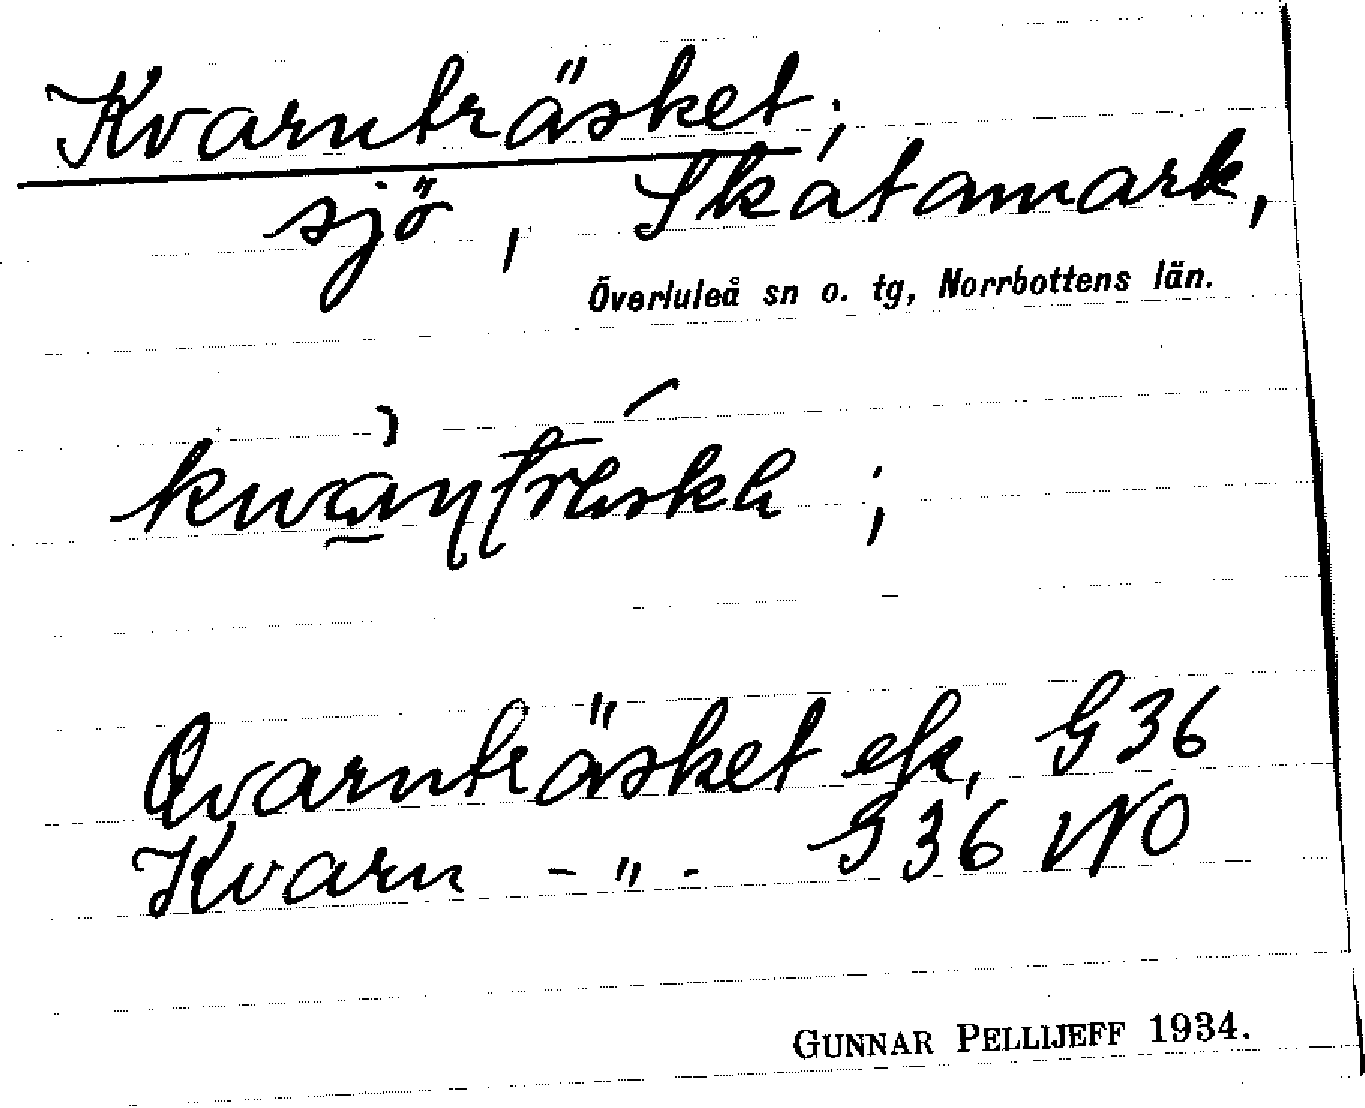 Kvarnträsket;
sjö, Skatamark,
Överluleå sn o. tg, Norrbottens län.
Qvarnträsket ek. G36
Kvarn -"- G36 NO
GUNNAR PELLIJEFF 1934.